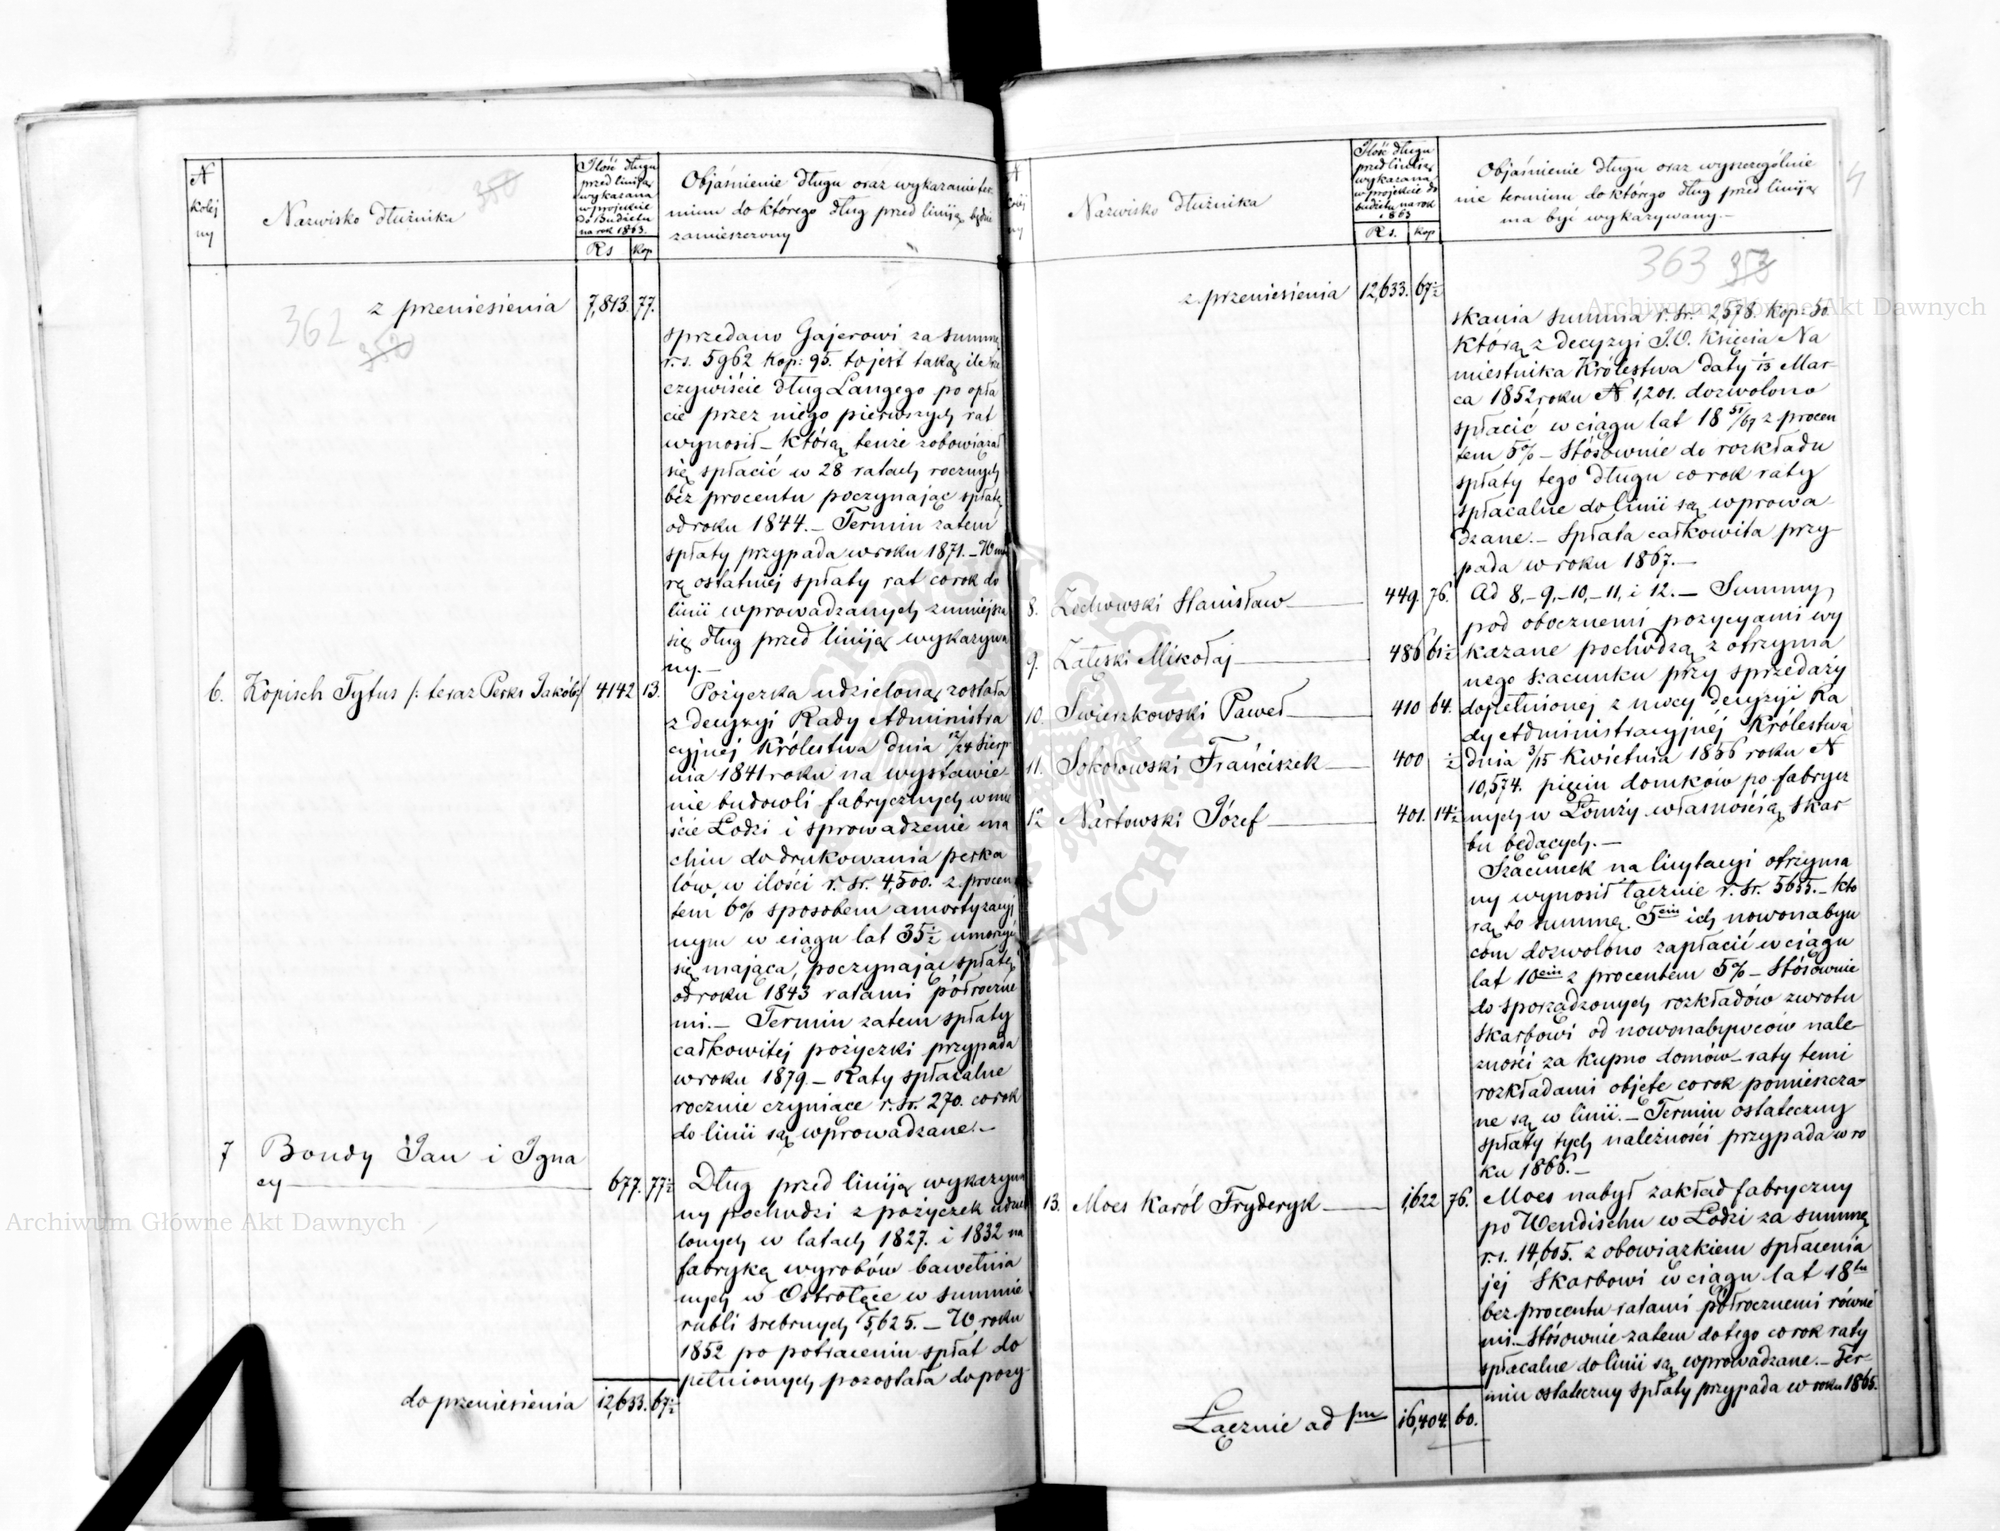 N
kolej
ny
Nazwisko dłużnika
350
Ilość długu
przed liniją
wykazana
w projekcie
do Budżetu
na rok 1863.
Rs
kop
Objaśnienie długu oraz wykazanie ter
minu do którego dług przed liniją będzie
zamieszczony
362
z przeniesienia 7,813. 77.
sprzedano Gajerowi za summę
r. s. 5962 kop: 95. to jest taką ile rze
czywiście dług Langego po opła
cie przez niego pierwszych rat
wynosił – którą tenże zobowiązał
się spłacić w 28 ratach rocznych
bez procentu poczynając spłatę
od roku 1844. – Termin zatem
spłaty przypada w roku 1871. – W mia
rę ostatniej spłaty rat corok do
linii wprowadzanych zmniejsza
się dług przed liniją wykazywa
ny. –
6. Kopisch Tytus /: teraz Perks Jakób:/ 4142 13.
Pożyczka udzieloną została
z decyzyi Rady Administra
cyjnej Królestwa dnia 12/24 Sierp
nia 1841 roku na wystawie
nie budowli fabrycznych w mie
ście Łodzi i sprowadzenie ma
chin do drukowania perka
lów, w ilości r. sr. 4,500. z procen
tem 6% sposobem amortyzacyj
nym w ciągu lat 35½ umorzyć
się mająca, poczynając spłatę
od roku 1843 ratami półroczne
mi. – Termin zatem spłaty
całkowitej pożyczki przypada
w roku 1879. – Raty spłacalne
rocznie czyniące r. sr. 270. corok
do linii są wprowadzane. –
7 Bondy Jan i Igna
cy 677. 77½
Dług przed liniją wykazywa
ny pochodzi z pożyczek udzie
lonych w latach 1827. i 1832 na
fabrykę wyrobów bawełnia
nych w Ostrołęce w summie
rubli srebrnych 5,625. – W roku
1852 po potrąceniu spłat do
pełnionych pozostała do pozy-
do przeniesienia 12,633. 67½
N
kolej
ny
Nazwisko dłużnika
Ilość długu
przed liniją
wykazana
w projekcie do
budżetu na rok
1863
Rs.
kop
Objaśnienie długu oraz wyszczególnie
nie terminu do którego dług przed liniją
ma być wykazywany. –
363
z przeniesienia 12,633. 67½
skania summa r. sr. 2578. kop: 50.
którą z decyzyi J. O. Księcia Na
miestnika Królestwa daty 1/13 Mar-
ca 1852 roku N 1,201. dozwolono
spłacić w ciągu lat 18 z procen
tem 5% – Stósownie do rozkładu
spłaty tego długu corok raty
spłacalne do linii są wprowa-
dzane. – Spłata całkowita przy-
pada w roku 1867. –
8. Żochowski Stanisław 449. 76.
Ad 8, – 9, – 10, – 11, i 12. – Summy
pod obocznemi pozycyami wy
9. Zaleski Mikołaj 486 61½
kazane pochodzą z otrzyma
nego szacunku przy sprzedaży
10. Świerzkowski Paweł 410 64.
dopełnionej z mocy decyzji Ra
dy Administracyjnej Królestwa
11. Sokołowski Franciszek 400 ½
dnia 3/15 Kwietnia 1856 roku N
10,574. pięciu domków po fabrycz
12 Nartowski Józef 401. 14½
nych w Łomży własnością Skar
bu będących. –
Szacunek na licytacyi otrzyma
ny wynosił łącznie r. sr. 5655. – któ
rą to summę 5cin ich nowonabyw
com dozwolono zapłacić w ciągu
lat 10ciu z procentem 5% – Stósownie
do sporządzonych rozkładów zwrotu
Skarbowi od nowonabywców nale-
żności za kupno domów – raty temi
rozkładami objęte corok pomieszcza-
ne są w linii. – Termin ostateczny
spłaty tych należności przypada w ro
ku 1866. –
13. Moes Karól Fryderyk 1,622 76.
Moes nabył zakład fabryczny
po Wendischu w Łodzi za summę
r. s. 14,605. z obowiązkiem spłacenia
jej Skarbowi w ciągu lat 18tu
bez procentu ratami półrocznemi równe
mi. – Stósownie zatem do tego corok raty
spłacalne do linii są wprowadzane. – Ter-
min ostateczny spłaty przypada w roku 1865.
Łącznie ad 1m 16,404. 60.
Archiwum Główne Akt Dawnych
Archiwum Główne Akt Dawnych